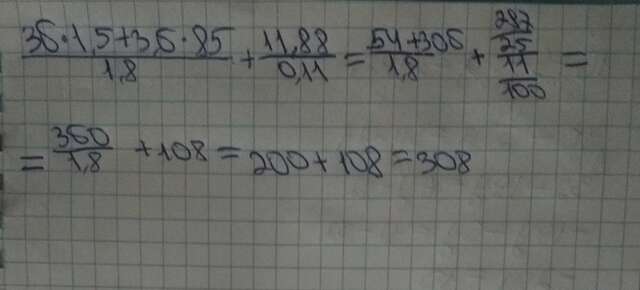 (36·1,5+3,6·85)/1,8 + 11,88/0,11 = (54+306)/1,8 + (287/25)/(11/100) =
= 360/1,8 + 108 = 200 + 108 = 308